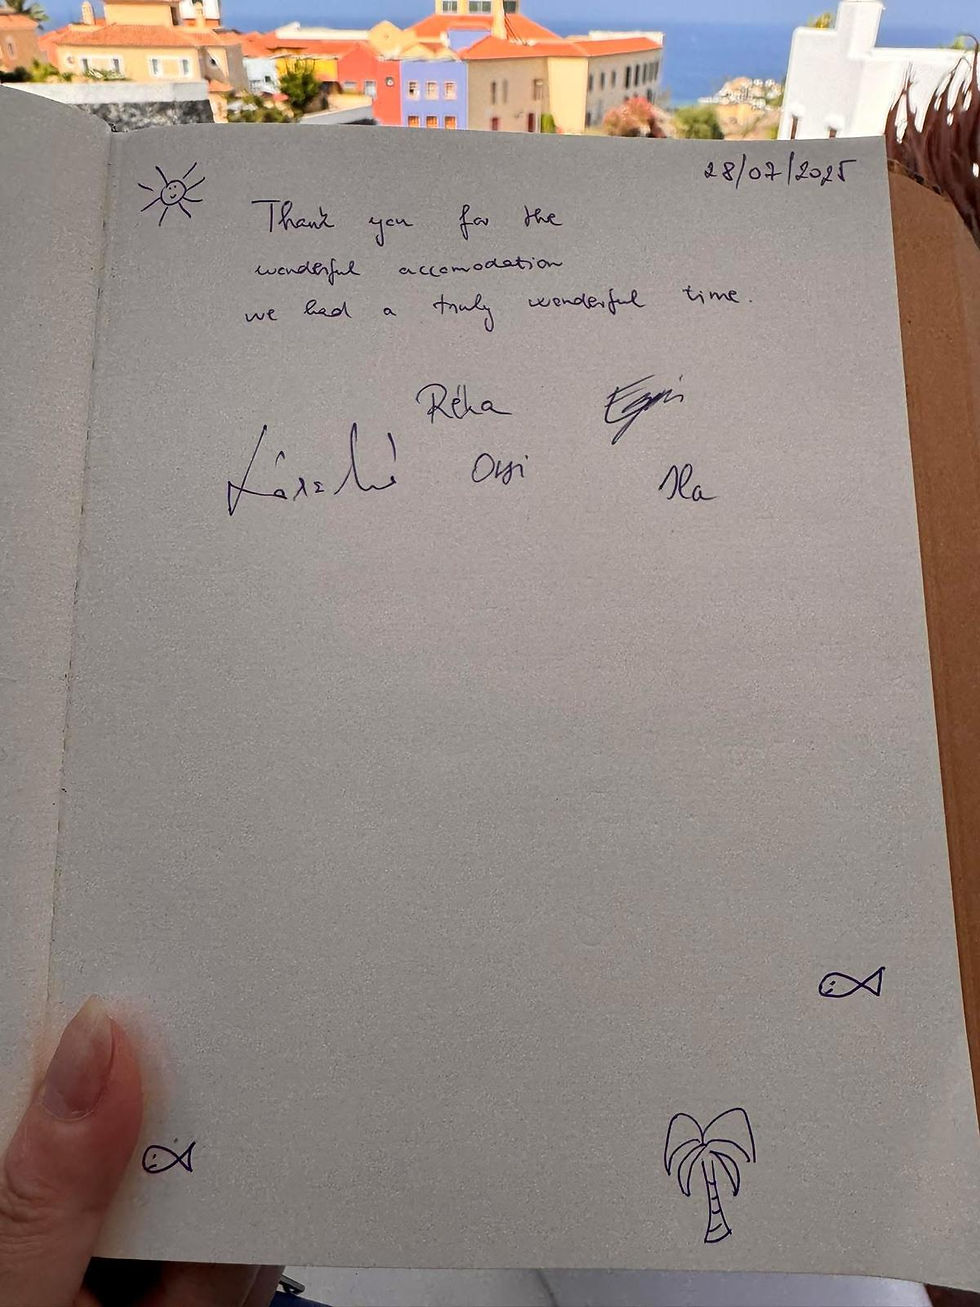 28/07/2025
Thank you for the
wonderful accomodation
we had a truly wonderful time.
Réka
Orsi